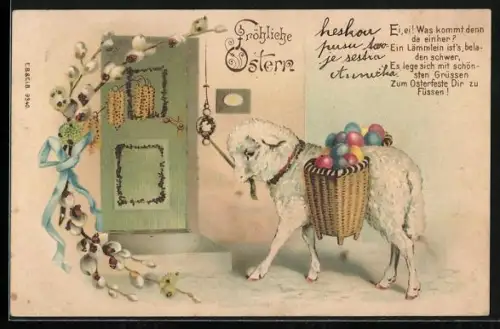 Fröhliche
Ostern
heskou
pusu
je sestra
Annička
Ei, ei! Was kommt denn
da einher?
Ein Lämmlein ist's, bela-
den schwer,
Es lege sich mit schön-
sten Grüssen
Zum Osterfeste Dir zu
Füssen!